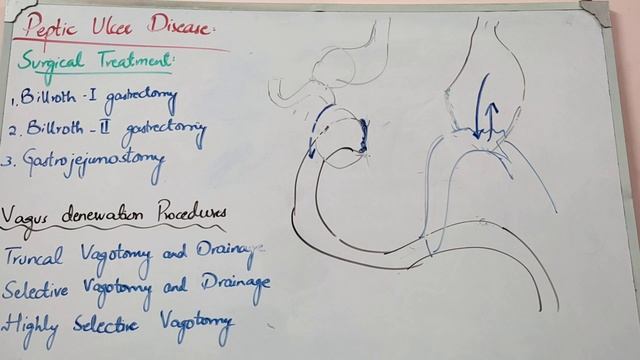 Peptic Ulcer Disease:
Surgical Treatment:
1. Billroth - I gastrectomy
2. Billroth - II gastrectomy
3. Gastrojejunostomy
Vagus denervation Procedures
Truncal Vagotomy and Drainage
Selective Vagotomy and Drainage
Highly Selective Vagotomy